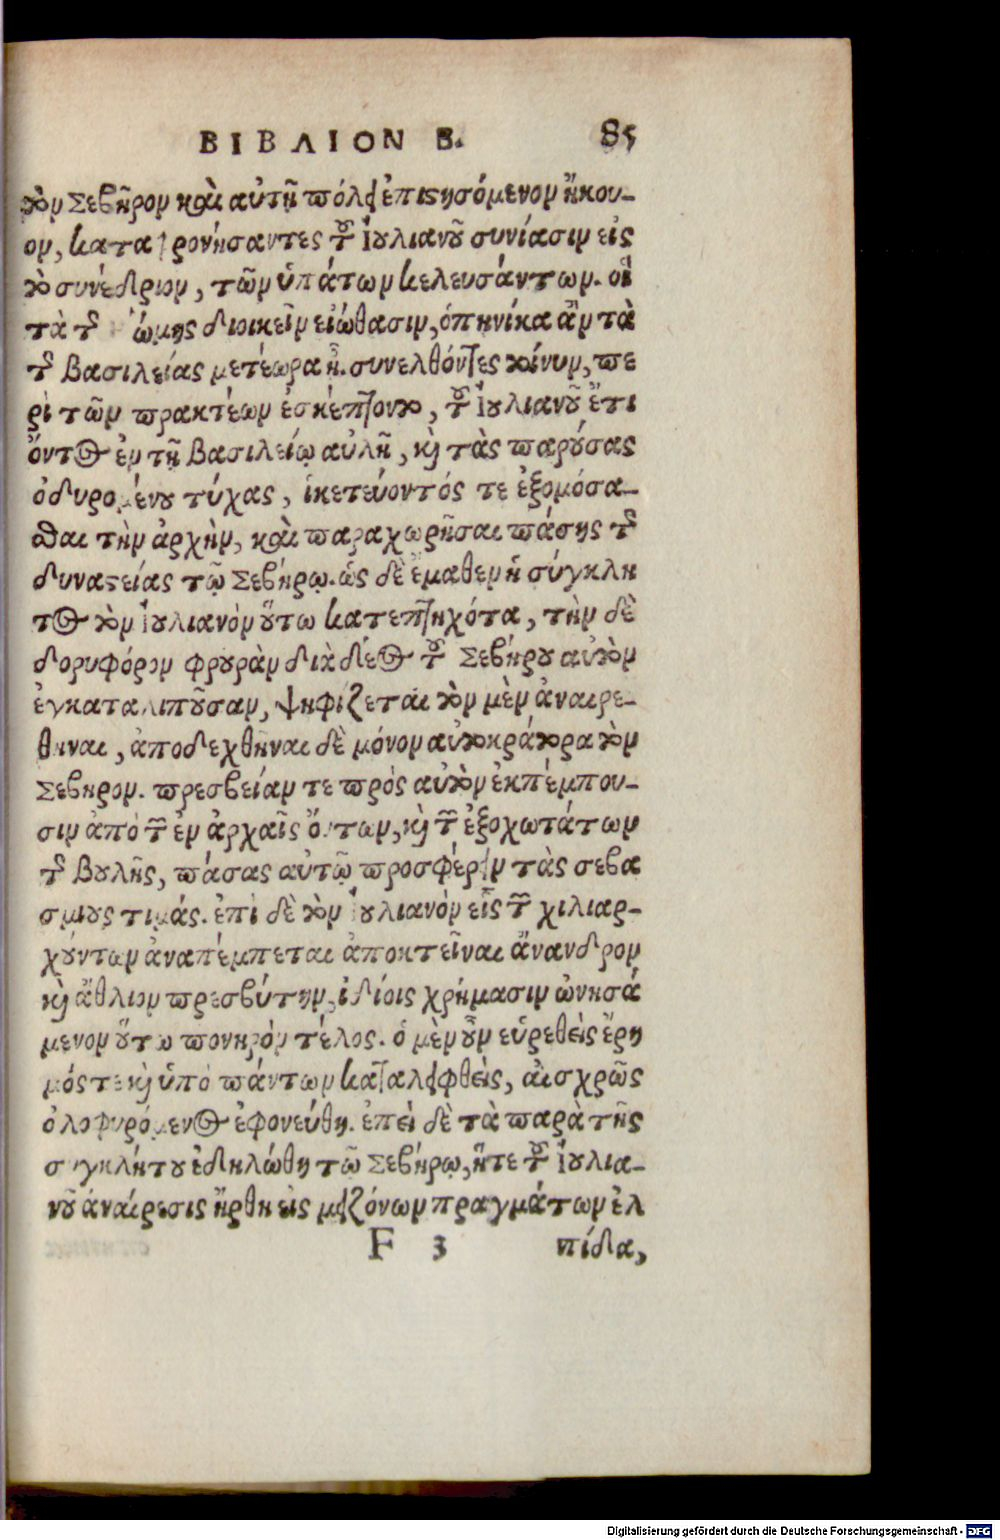 ΒΙΒΛΙΟΝ Β. 85
τὸν Σεβῆρον καὶ αὐτῇ πόλει ἐπιστησόμενον ἤκου-
ον, καταφρονήσαντες τοῦ Ἰουλιανοῦ συνίασιν εἰς
τὸ συνέδριον, τῶν ὑπάτων κελευσάντων. οἳ
τὰ τῆς Ῥώμης διοικεῖν εἰώθασιν, ὁπηνίκα ἂν τὰ
τῆς βασιλείας μετέωρα ᾖ. συνελθόντες τοίνυν, πε
ρὶ τῶν πρακτέων ἐσκέπτοντο, τοῦ Ἰουλιανοῦ ἔτι
ὄντος ἐν τῇ βασιλείῳ αὐλῇ, καὶ τὰς παρούσας
ὀδυρομένου τύχας, ἱκετεύοντός τε ἐξομόσα-
σθαι τὴν ἀρχὴν, καὶ παραχωρῆσαι πάσης τῆς
δυναστείας τῷ Σεβήρῳ. ὡς δὲ ἔμαθεν ἡ σύγκλη
τος τὸν Ἰουλιανὸν οὕτω κατεπτηχότα, τὴν δὲ
δορυφόρον φρουρὰν διὰ δέος τοῦ Σεβήρου αὐτὸν
ἐγκαταλιποῦσαν, ψηφίζεται τὸν μὲν ἀναιρε-
θῆναι, ἀποδεχθῆναι δὲ μόνον αὐτοκράτορα τὸν
Σεβῆρον. πρεσβείαν τε πρὸς αὐτὸν ἐκπέμπου-
σιν ἀπὸ τῶν ἐν ἀρχαῖς ὄντων, καὶ τῶν ἐξοχωτάτων
τῆς βουλῆς, πάσας αὐτῷ προσφέρειν τὰς σεβα
σμίους τιμάς. ἐπὶ δὲ τὸν Ἰουλιανὸν εἷς τῶν χιλιαρ-
χούντων ἀναπέμπεται ἀποκτεῖναι ἄνανδρον
καὶ ἄθλιον πρεσβύτην, ἰδίοις χρήμασιν ὠνησά
μενον οὕτω πονηρὸν τέλος. ὁ μὲν οὖν εὑρεθεὶς ἔρη
μός τε καὶ ὑπὸ πάντων καταλειφθεὶς, αἰσχρῶς
ὀλοφυρόμενος ἐφονεύθη. ἐπεὶ δὲ τὰ παρὰ τῆς
συγκλήτου ἐδηλώθη τῷ Σεβήρῳ, ἥτε τοῦ Ἰουλια-
νοῦ ἀναίρεσις ἤρθη εἰς μειζόνων πραγμάτων ἐλ
F 3 πίδα,
Digitalisierung gefördert durch die Deutsche Forschungsgemeinschaft - DFG